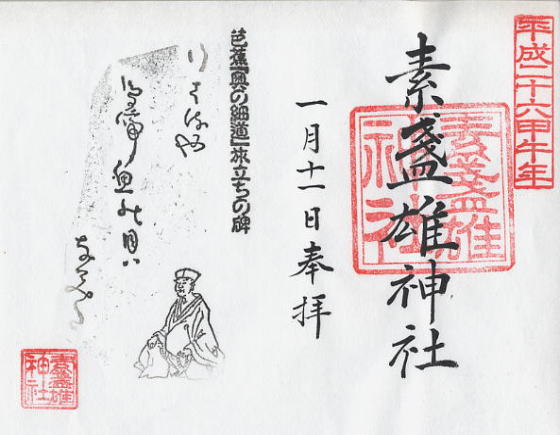 平成二十六甲午年
素盞雄神社
素盞雄神社
一月十一日奉拝
芭蕉『奥の細道』旅立ちの碑
行くはるや
鳥啼魚の目は
なみた